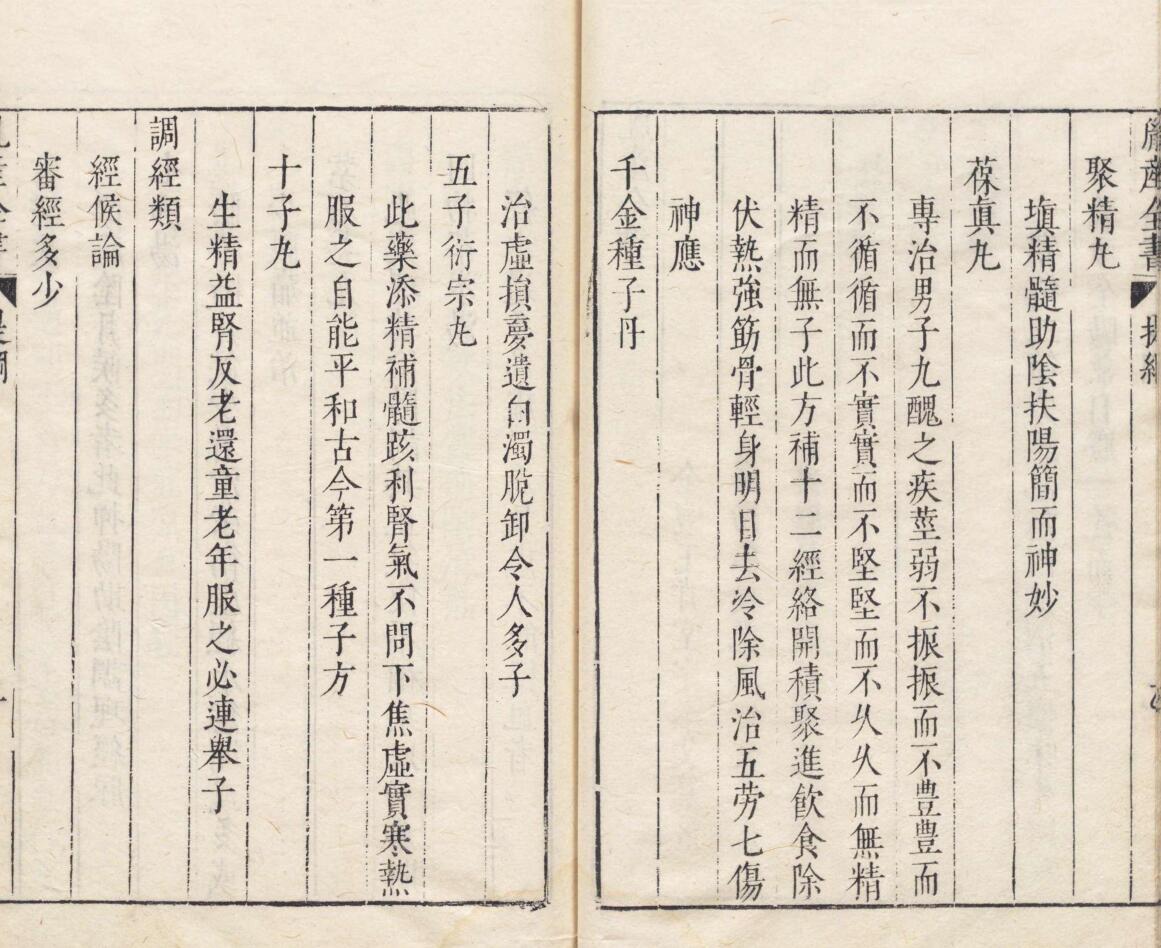 胤產全書 提綱
聚精丸
塡精髓助陰扶陽簡而神妙
葆眞丸
專治男子九醜之疾莖弱不振振而不豊豊而
不循循而不實實而不堅堅而不久久而無精
精而無子此方補十二經絡開積聚進飲食除
伏熱強筋骨輕身明目去冷除風治五勞七傷
神應
千金種子丹
治虛損夢遺白濁脫卸令人多子
五子衍宗丸
此藥添精補髓䟽利腎氣不問下焦虛實寒熱
服之自能平和古今第一種子方
十子丸
生精益腎反老還童老年服之必連舉子
調經類
經候論
審經多少